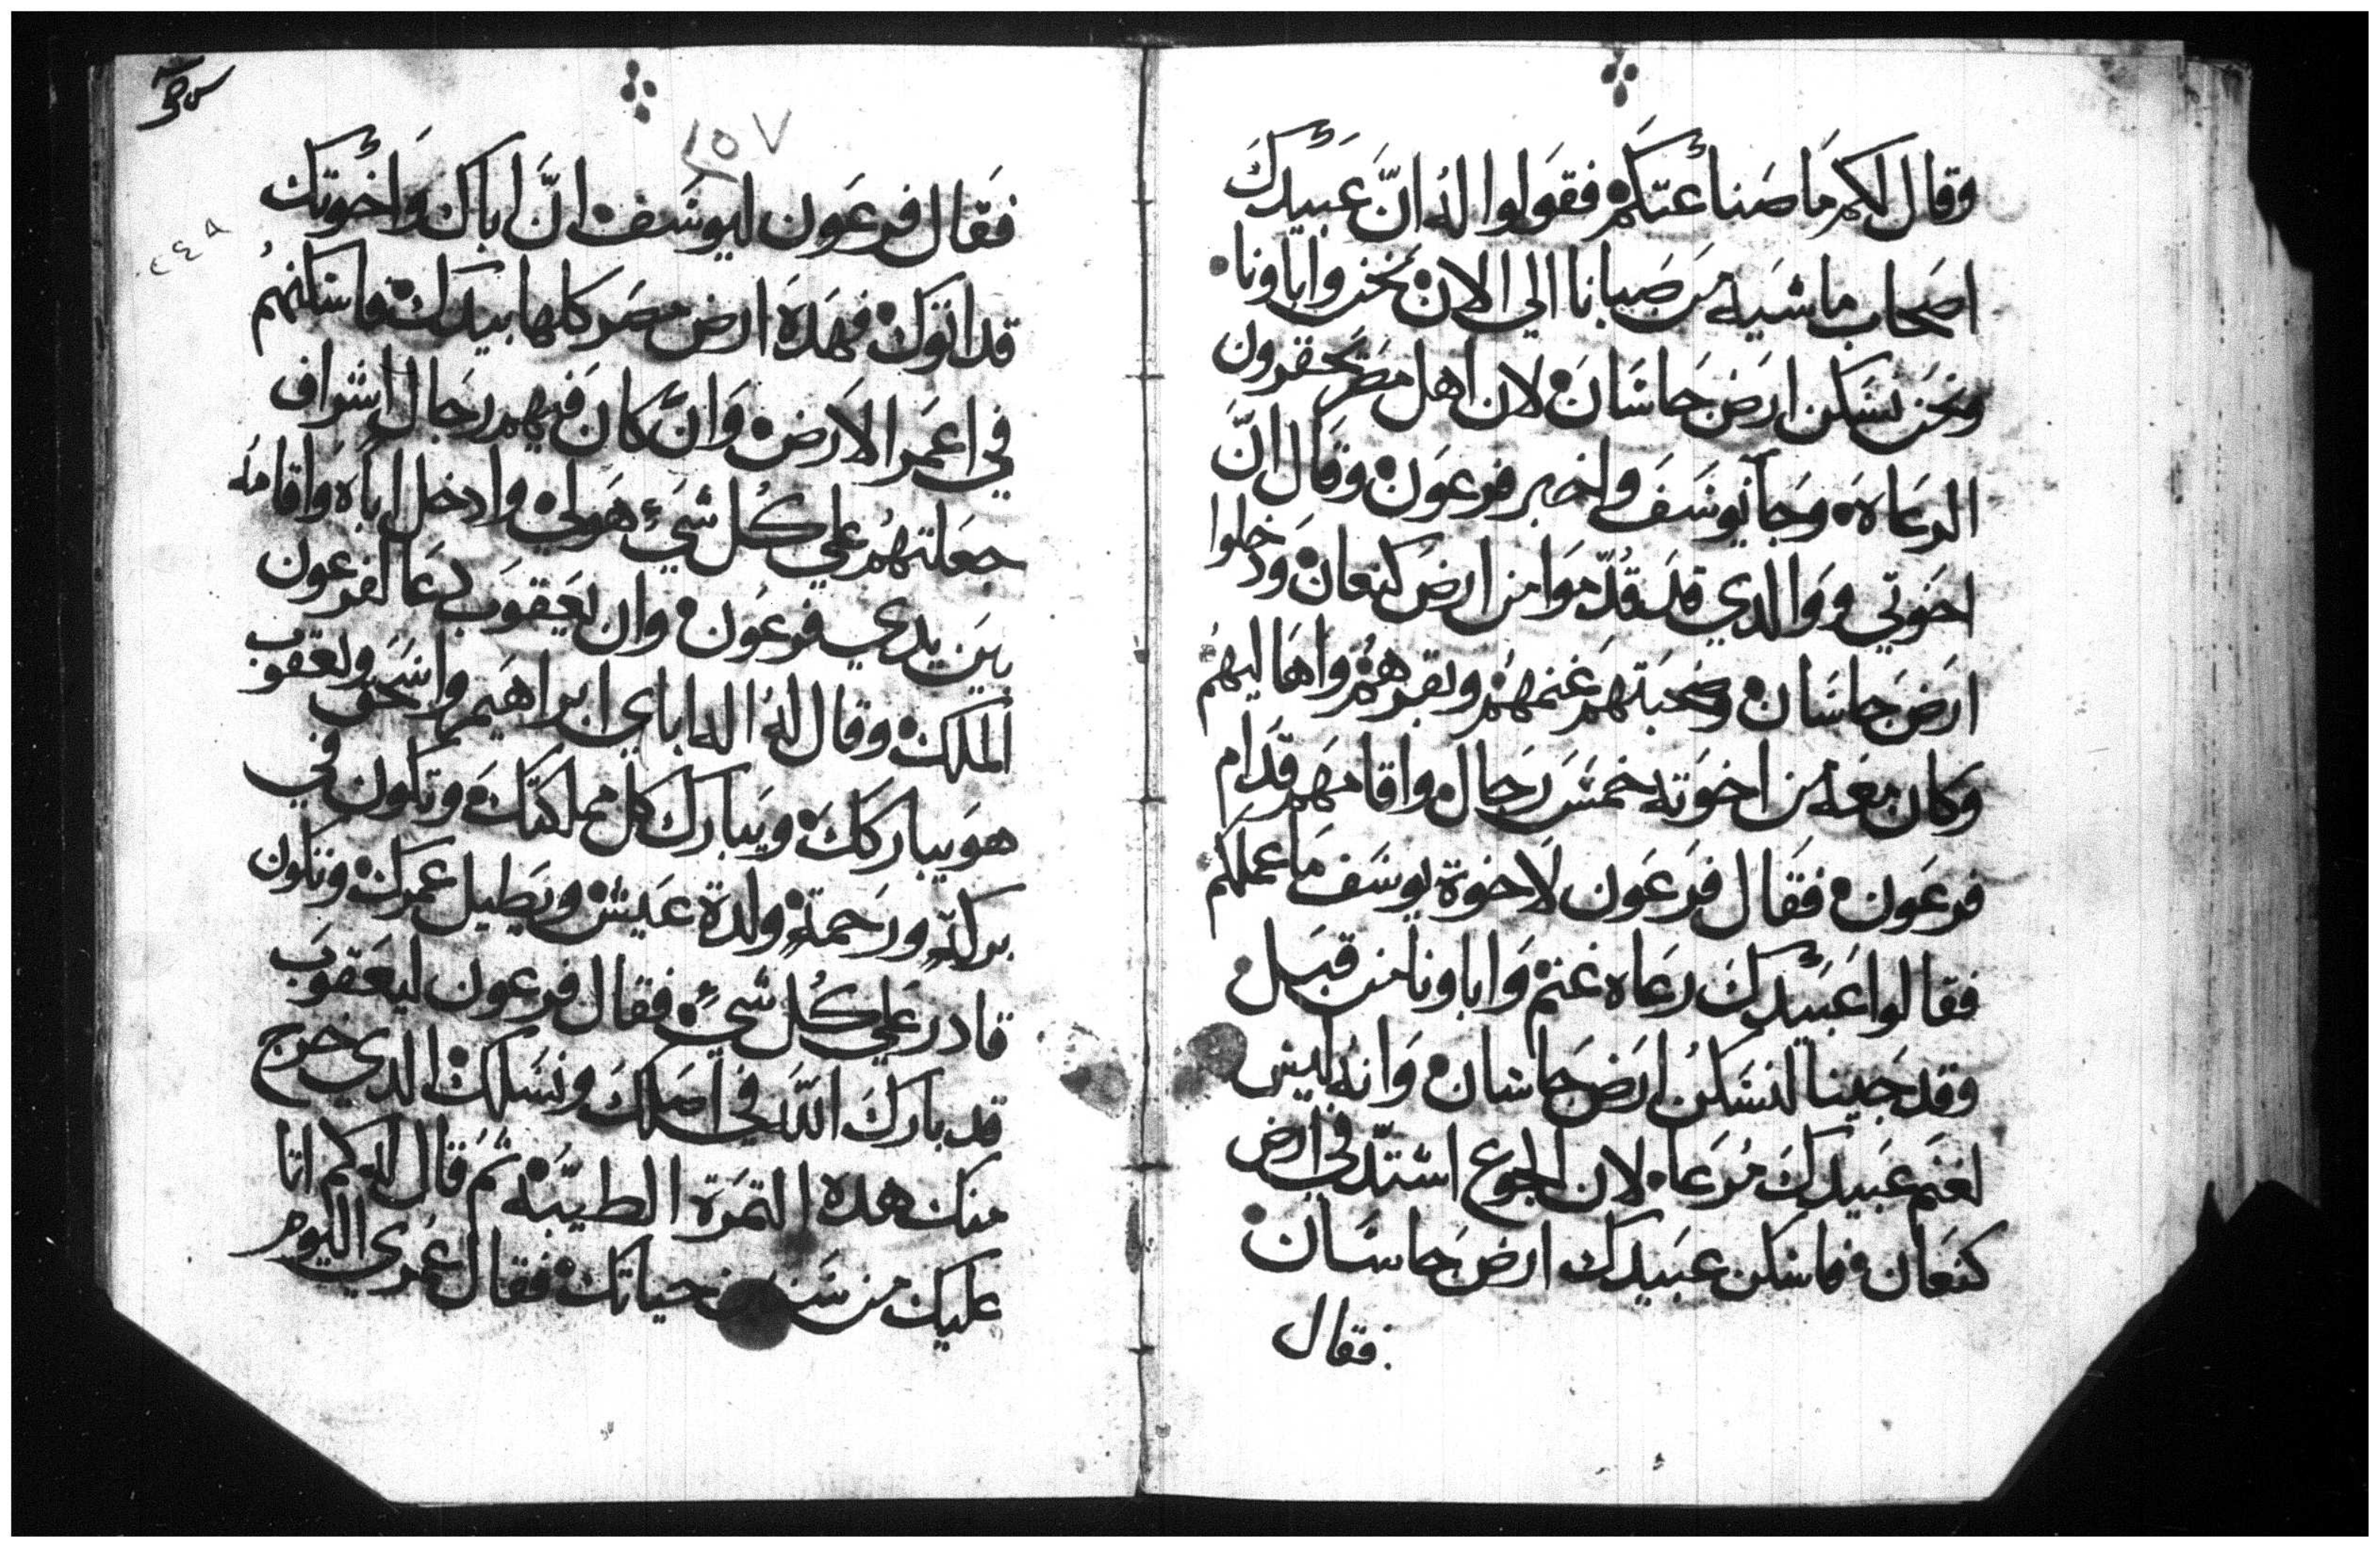 وقال لكم ما صناعتكم فقولوا له ان عبيدك
اصحاب ماشيه من صبانا الي الان نحن واباونا
ونحن نسكن ارض جاسان لان اهل مصر يحقرون
الرعاه وجا يوسف واخبر فرعون وقال ان
اخوتي ووالدي قد قدموا من ارض كنعان ودخلوا
ارض جاسان وصحبتهم غنمهم وبقرهم واهاليهم
وكان معه من اخوته خمس رجال واقامهم قدام
فرعون فقال فرعون لاخوة يوسف ما عملكم
فقالوا عبيدك رعاه غنم واباونا من قبل
وقد جينا لنسكن ارض جاسان وانه ليس
لغنم عبيدك مرعا لان الجوع اشتد في ارض
كنعان فاسكن عبيدك ارض جاسان
فقال
٢٥٧
٢٤٨
فقال فرعون ليوسف ان اباك واخوتك
قد اتوك فهده ارض مصر كلها بيدك فاسكنهم
في اعمر الارض وان كان فيهم رجال اشراف
جعلتهم علي كل شيء هولي وادخل اباه واقامه
بين يدي فرعون وان يعقوب دعا لفرعون
الملك وقال له اله اباي ابراهيم واسحق ويعقوب
هو يباركك ويبارك كل مملكتك وتكون في
بركة ورحمة ولدة عيش ويطيل عمرك وتكون
قادر علي كل شيء فقال فرعون ليعقوب
قد بارك الله في اصلك ونسلك الدي خرج
منك هده التمرة الطيبه ثم قال له كم اتا
عليك من سنين حياتك فقال عمري اليوم